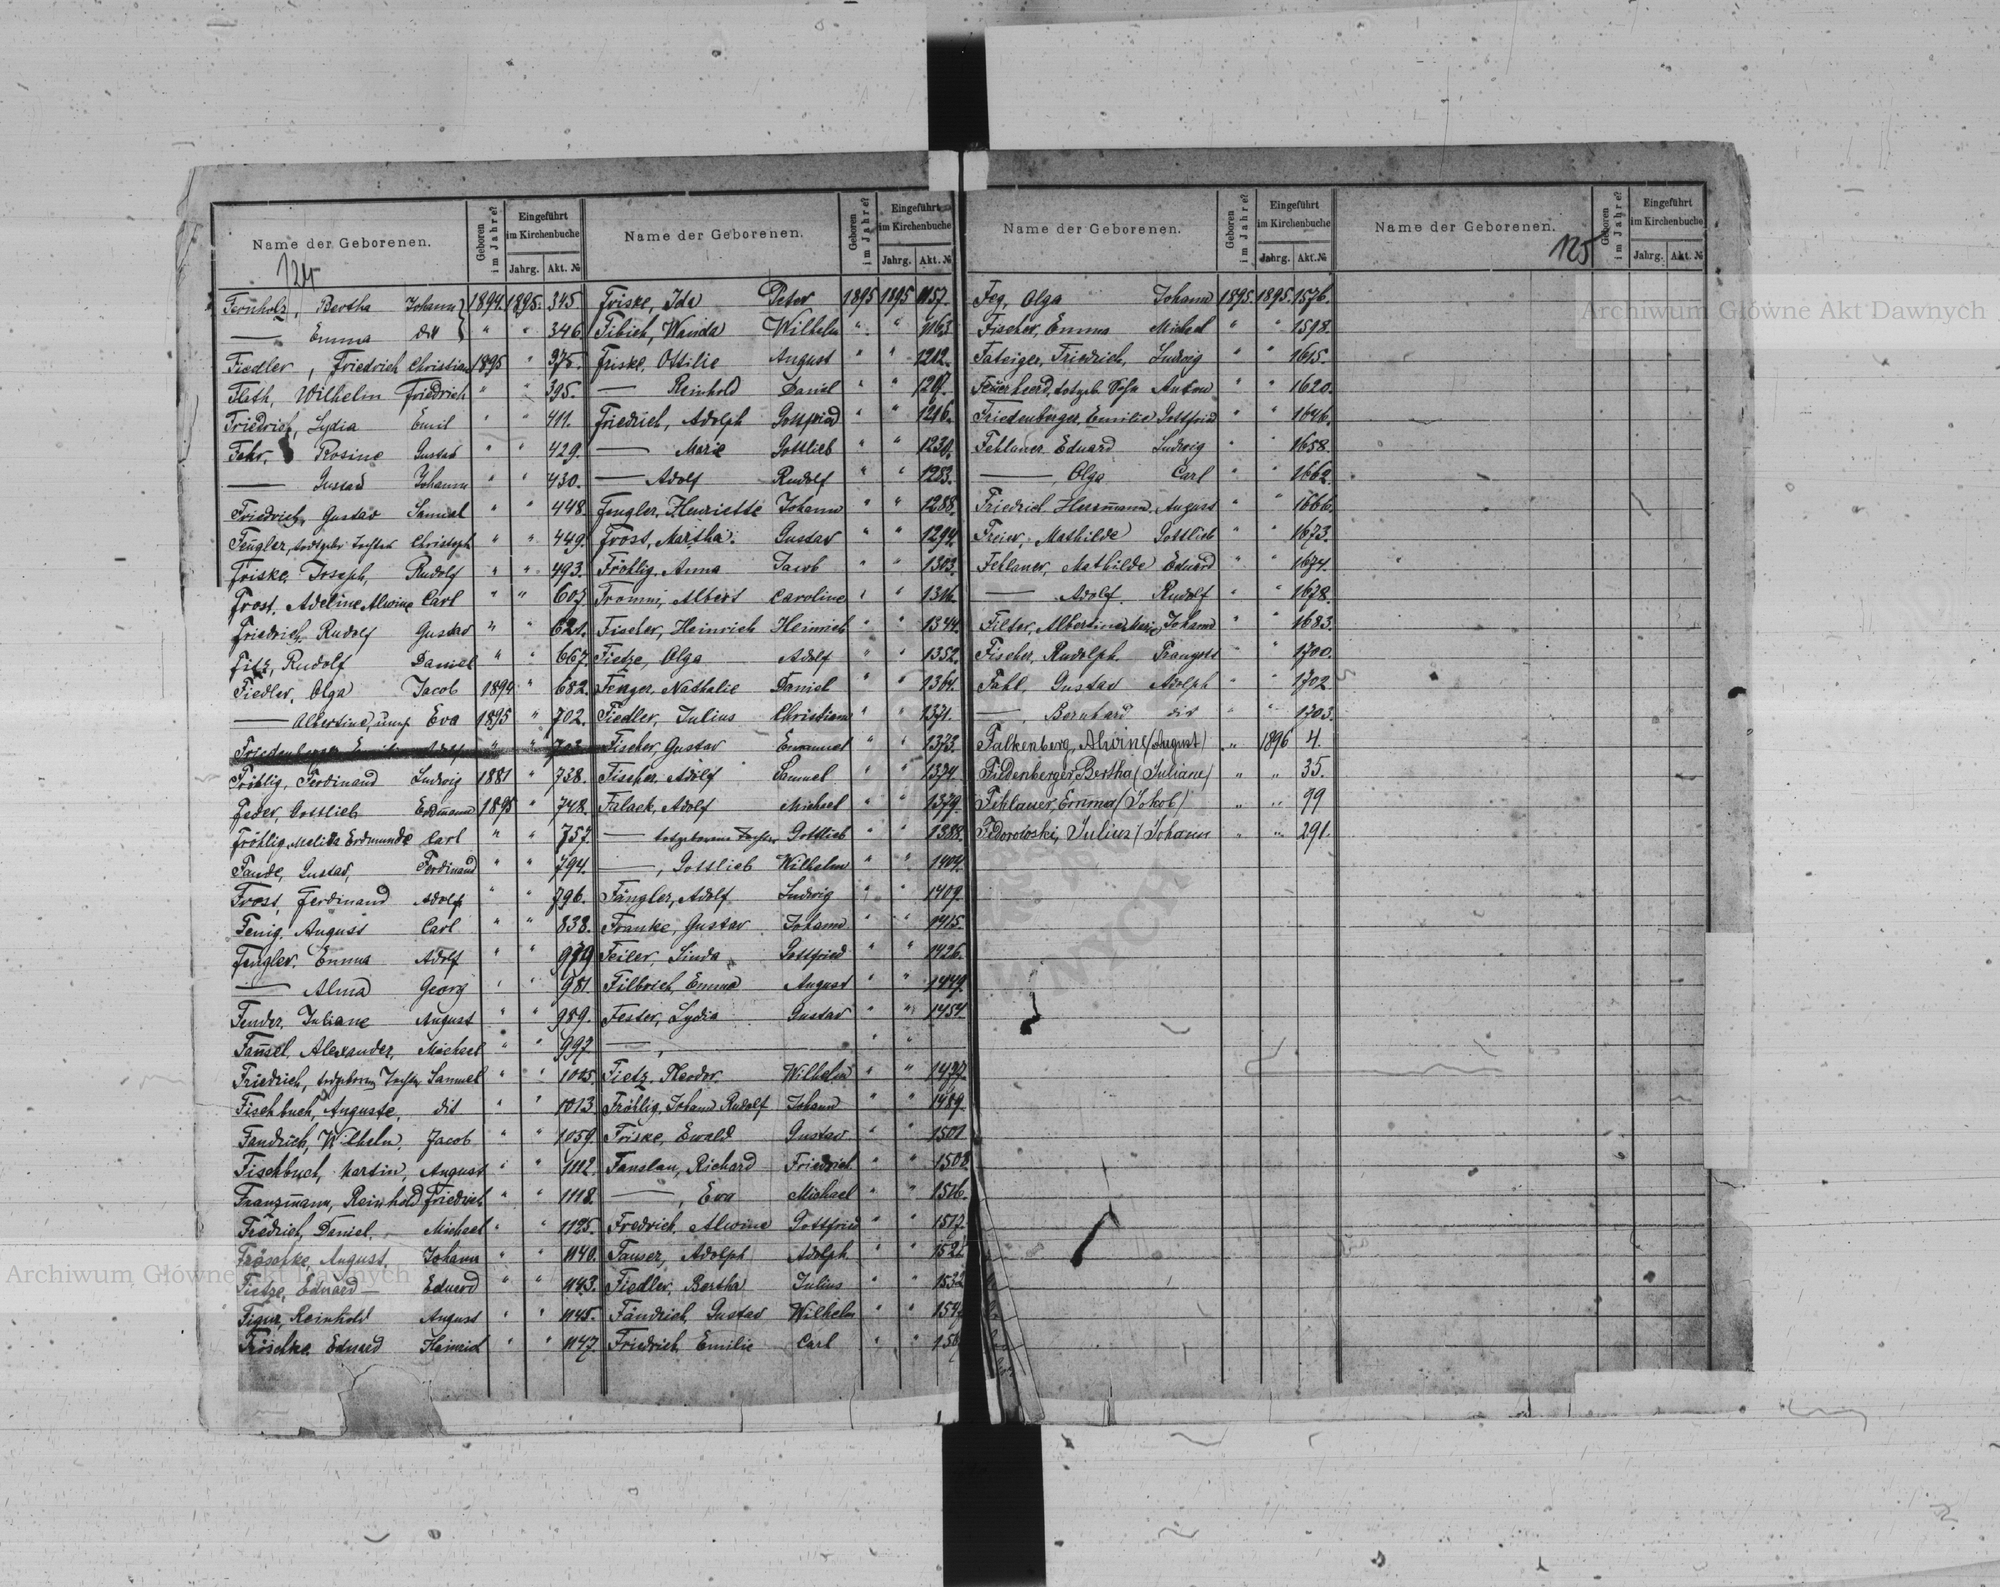 Name der Geborenen.
Geboren im Jahre?
Eingeführt im Kirchenbuche
Jahrg. Akt. №
124
Fernholz, Bertha Johann 1894. 1895. 345.
—— Emma dit " " 346.
Fiedler, Friedrich Christian 1895 " 375.
Flath, Wilhelm Friedrich " " 395.
Friedrich, Lydia Emil " " 411.
Fehr, Rosine Gustav " " 429.
—— Gustav Johann " " 430.
Friedrich, Gustav Samuel " " 448.
Fengler, Christoph " " 449.
Friske, Joseph, Rudolf " " 493.
Frost, Adeline Alwine Carl " " 607.
Friedrich Rudolf Gustav " " 621.
Fitz, Rudolf Daniel " " 667.
Fiedler, Olga Jacob 1894 " 682.
—— Albertine, Eva 1895 " 702.
Fröhlig, Ferdinand Ludwig 1881 " 738.
Feder, Gottlieb Erdmann 1895 " 748.
Fröhlig, Melida Erdmunde Carl " " 757.
Fande, Gustav, Ferdinand " " 794.
Frost, Ferdinand Adolf " " 796.
Fenig, August Carl " " 838.
Fengler, Emma Adolf " " 979
—— Alma Georg " " 981.
Fender, Juliane August " " 989.
Fansel, Alexander, Michael " " 997.
Friedrich, Samuel " " 1005.
Fischbuch, Auguste, dit " " 1013
Fandrich, Wilhelm, Jacob " " 1059.
Fischbuch, Martin, August " " 1112.
Franzmann, Reinhold Friedrich " " 1118.
Friedrich, Daniel Michael " " 1125.
Fröschke, August, Johann " " 1140.
Fietze, Eduard — Eduard " " 1143.
Figur, Reinhold August " " 1145.
Fröschke, Eduard Heinrich " " 1147.
Name der Geborenen.
Geboren im Jahre?
Eingeführt im Kirchenbuche
Jahrg. Akt. №
Friske, Ida Peter 1895 1895 1157.
Fibich, Wanda Wilhelm " " 1163.
Friske, Ottilie August " " 1212.
—— Reinhold Daniel " "
Friedrich, Adolph Gottfried " " 1216.
—— Marie Gottlieb " " 1230.
—— Adolf Rudolf " " 1283.
Fengler, Henriette Johann " " 1288.
Frost, Martha. Gustav " " 1294.
Fröhlig, Anna Jacob " " 1303.
Fromm, Albert Caroline " " 1316.
Fischer, Heinrich Heinrich " " 1344.
Fietze, Olga Adolf " " 1352.
Fenger, Nathalie Daniel " " 1364.
Fiedler, Julius Christian " " 1371.
Fischer, Gustav Emanuel " " 1373.
Fischer, Adolf Samuel " " 1374.
Falack, Adolf Michael " " 1379.
—— todgeborene Tochter Gottlieb " " 1388.
——, Gottlieb Wilhelm " " 1404.
Fängler, Adolf Ludwig " " 1409.
Franke, Gustav Johann " " 1415.
Feiler, Linda Gottfried " " 1426.
Filbrich, Emma August " " 1449.
Fester, Lydia Gustav " " 1454.
——, " "
Fietz, Theodor Wilhelm " "
Fröhlig, Johann Rudolf Johann " " 1489.
Friske, Ewald Gustav " " 1501
Fanslau, Richard Friedrich " " 1508.
——, Eva Michael " " 1516.
Fredrich, Alwine Gottfried " " 1517.
Fauser, Adolph Adolph " "
Fiedler, Bertha Julius " " 1532
Fändrich, Gustav Wilhelm " "
Friedrich, Emilie Carl " "
Name der Geborenen.
Geboren im Jahre?
Eingeführt im Kirchenbuche
Jahrg. Akt. №
Feg, Olga Johann 1895. 1895. 1576.
Fischer, Emma Michael " " 1598.
Fateiger, Friedrich, Ludwig " " 1615.
Feuerheerd, todgeb. Sohn Anton " " 1620.
Friedenberger, Emilie Gottfried " " 1646.
Fehlauer, Eduard Ludwig " " 1658.
——, Olga Carl " " 1662.
Friedrich, Hermann August " " 1666.
Freier, Mathilde Gottlieb " " 1673.
Fehlauer, Mathilde Eduard " " 1674.
—— Adolf Rudolf " " 1678.
Filter, Albertine Johann " " 1683.
Fischer, Rudolph. " " 1700.
Fahl, Gustav Adolph " " 1702
——, Bernhard dit " " 1703.
Falkenberg, Alwine (August) " 1896 4.
Fridenberger, Bertha (Juliane) " " 35.
Fehlauer, Emma (Jokob) " " 99
Fedorowski, Julius / Johann " " 291.
Name der Geborenen.
125
Geboren im Jahre?
Eingeführt im Kirchenbuche
Jahrg. Akt. №
Archiwum Główne Akt Dawnych
Archiwum Główne Akt Dawnych